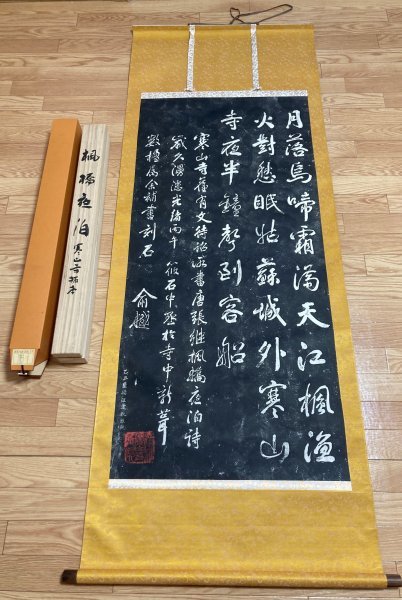 月落烏啼霜滿天江楓漁
火對愁眠姑蘇城外寒山
寺夜半鐘聲到客船
寒山寺舊有文待詔所書唐張繼楓橋夜泊詩
歲久漫漶光緒丙午筱石中丞於寺中新葺
數楹屬余補書刻石
俞樾
楓橋夜泊
寒山寺拓本